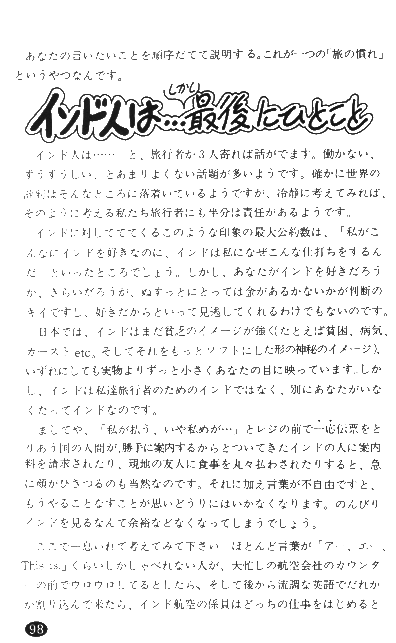 あなたの言いたいことを順序だてて説明する。これが一つの「旅の慣れ」
というやつなんです。
しかし
インド人は…最後にひとこと
インド人は……と、旅行者が3人寄れば話がでます。働かない、
ずうずうしい、とあまりよくない話題が多いようです。確かに世界の
評判はそんなところに落着いているようですが、冷静に考えてみれば、
そのように考える私たち旅行者にも半分は責任があるようです。
インドに対してでてくるこのような印象の最大公約数は、「私がこ
んなにインドを好きなのに、インドは私になぜこんな仕打ちをするん
だ」といったところでしょう。しかし、あなたがインドを好きだろう
か、きらいだろうが、ぬすっとにとっては金があるかないかが判断の
キイですし、好きだからといって見逃してくれるわけでもないのです。
日本では、インドはまだ貧乏のイメージが強く(たとえば貧困、病気、
カーストetc。そしてそれをもっとソフトにした形の神秘のイメージ)、
いずれにしても実物よりずっと小さくあなたの目に映っています。しか
し、インドは私達旅行者のためのインドではなく、別にあなたがいな
くたってインドなのです。
ましてや、「私が払う、いや私めが…」とレジの前で一応伝票をと
りあう国の人間が、勝手に案内するからとついてきたインドの人に案内
料を請求されたり、現地の友人に食事を丸々払わされたりすると、急
に顔がひきつるのも当然なのです。それに加え言葉が不自由ですと、
もうやることなすことが思いどうりにはいかなくなります。のんびり
インドを見るなんて余裕などなくなってしまうでしょう。
ここで一息いれて考えてみて下さい。ほとんど言葉が「アー、エー、
This is.」くらいしかしゃべれない人が、大忙しの航空会社のカウンタ
ーの前でウロウロしてるとしたら、そして後から流調な英語でだれか
が割り込んで来たら、インド航空の係員はどっちの仕事をはじめると
98